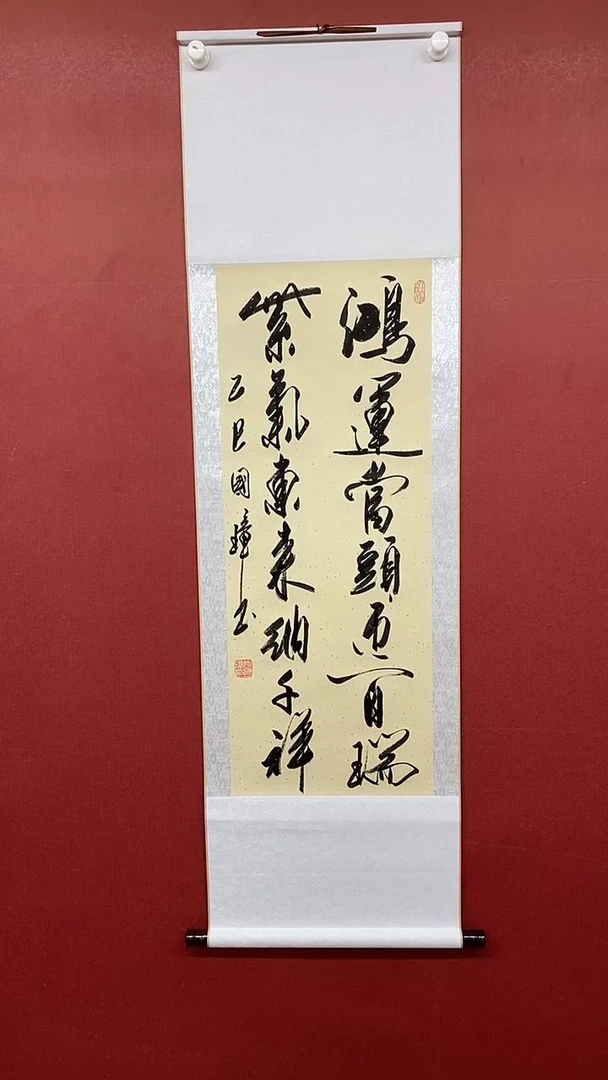 鴻運當頭迎百瑞
紫氣東来納千祥
乙巳國璋书